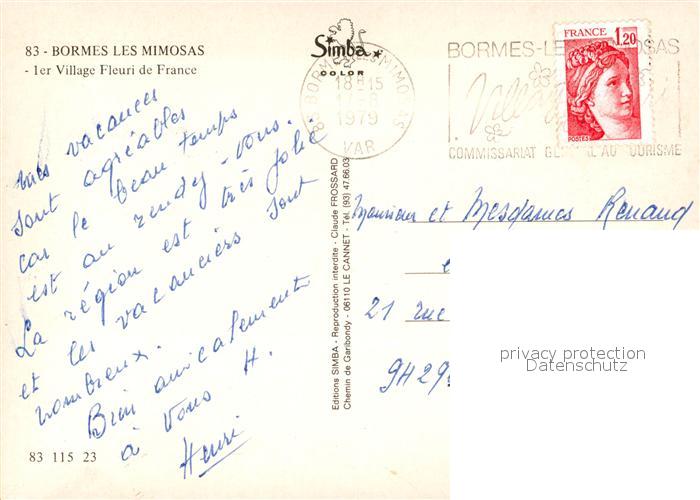 83 - BORMES LES MIMOSAS
- 1er Village Fleuri de France
mes vacances
sont agréables
car le beau temps
est au rendez-vous.
La région est très jolie
et les vacanciers sont
nombreux.
Bien amicalement
à vous H.
Henri
83 115 23
Simba
COLOR
83 BORMES-LES-MIMOSAS
18H15
1979
VAR
BORMES-LES MIMOSAS
COMMISSARIAT GENERAL AU TOURISME
FRANCE 1,20
POSTES
Editions SIMBA - Reproduction interdite - Claude FROSSARD
Chemin de Garibondy - 06110 LE CANNET - Tél. (93) 47.66.03
Monsieur et Mesdames Renaud
21 rue
9429
privacy protection
Datenschutz